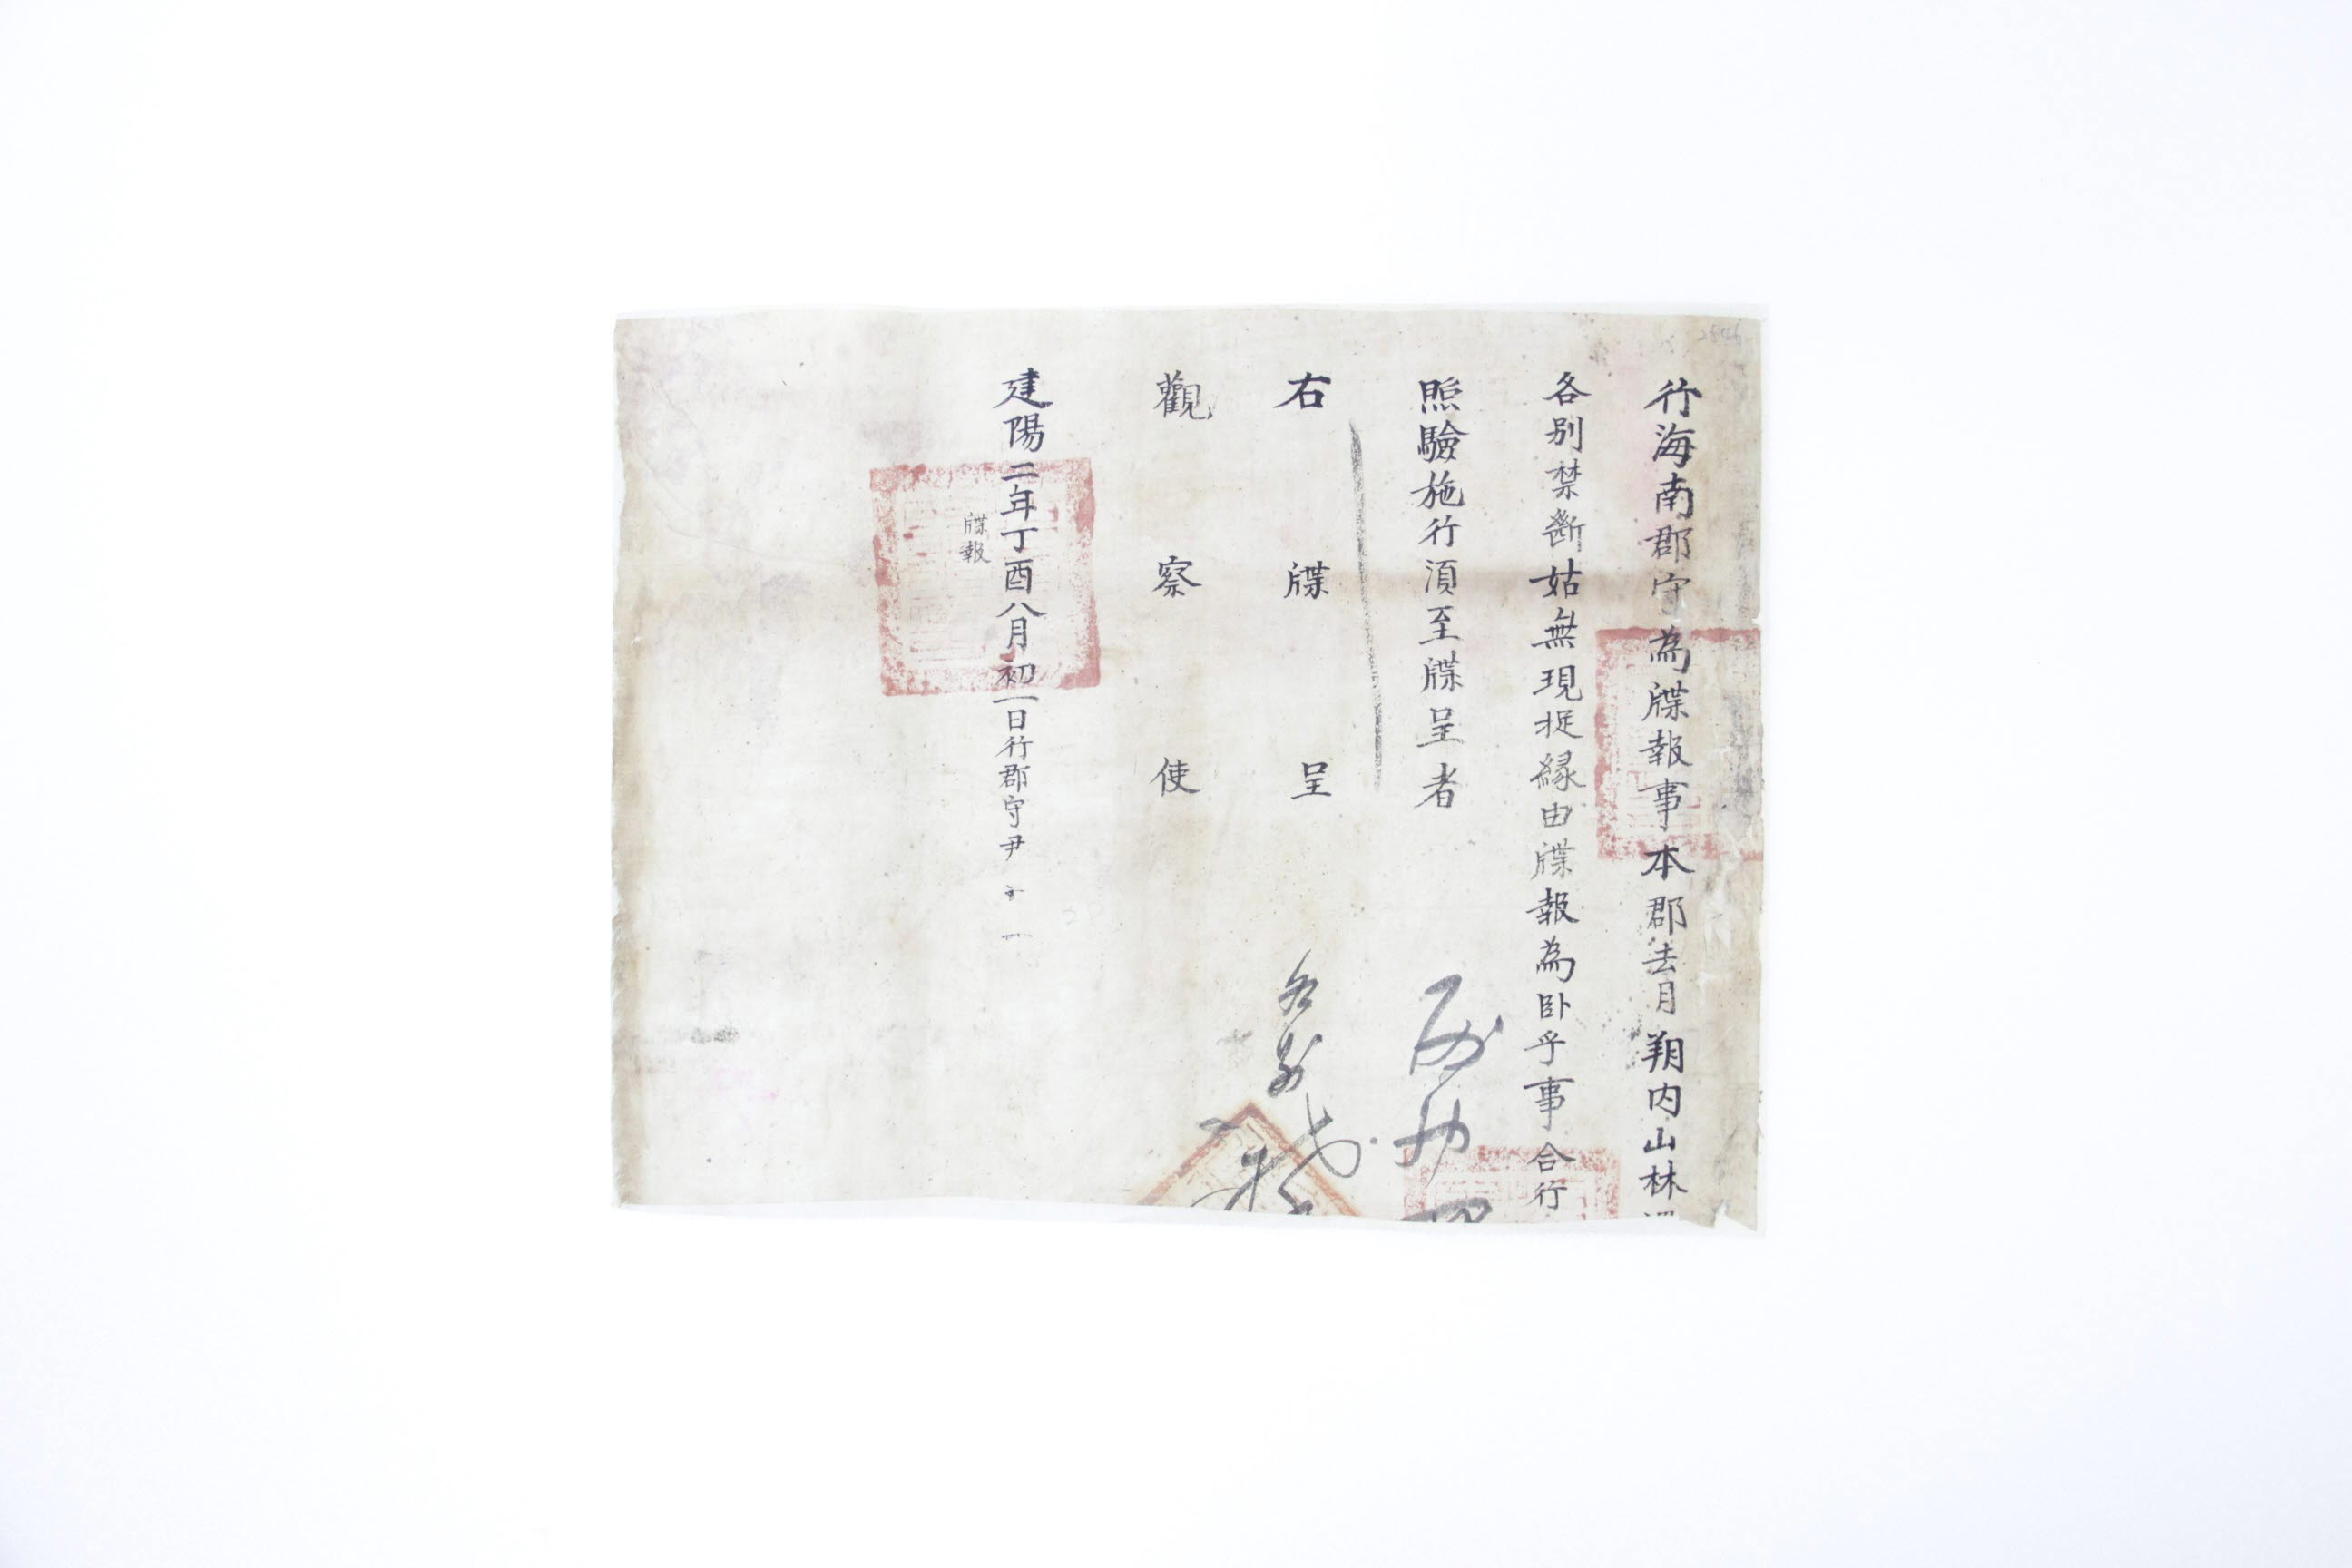 行海南郡守為牒報事本郡去月朔内山林
各別禁斷姑無現捉緣由牒報為卧乎事合行
照驗施行湏至牒呈者
右牒呈
觀察使
建陽二年丁酉八月初一日行郡守尹
牒報